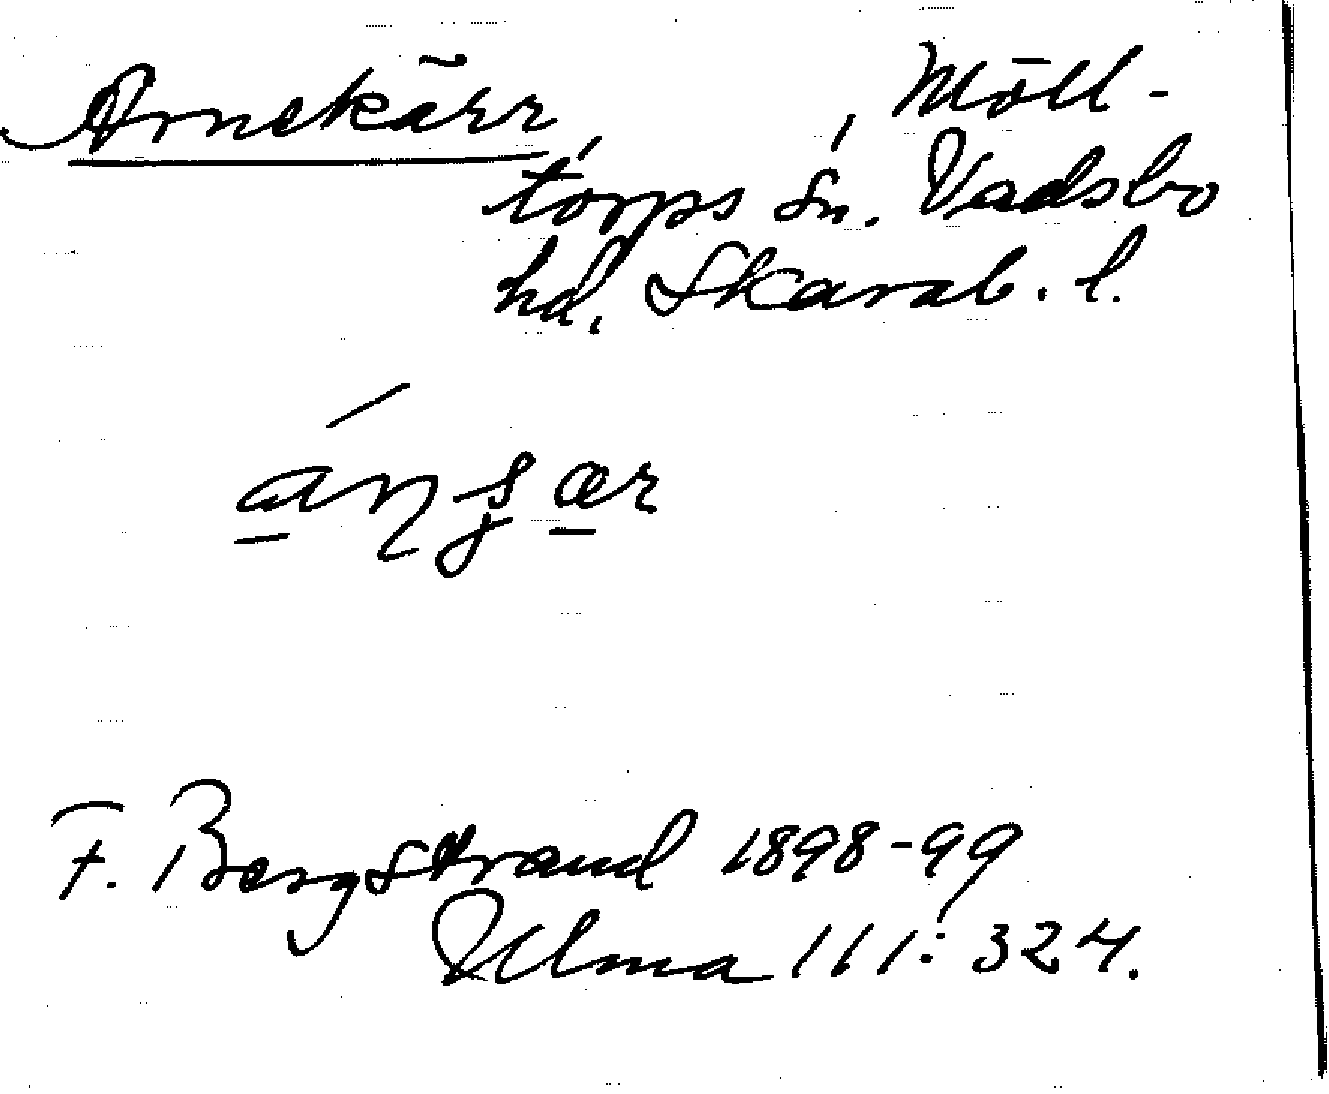 Arnekärr, Möll-
torps sn. Vadsbo
hd, Skarab. l.
F. Bergstrand 1898-99
Ulma 111:324.